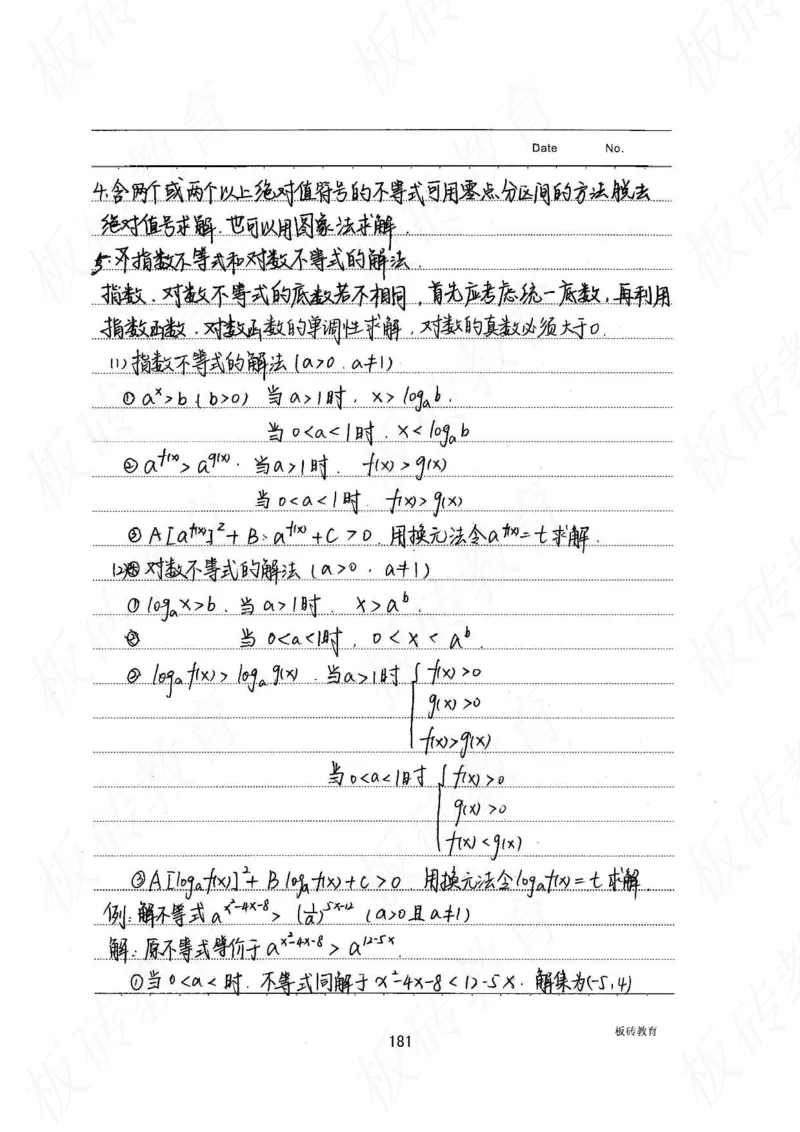 Date No.
4.含两个或两个以上绝对值符号的不等式可用零点分区间的方法脱去
绝对值号求解.也可以用图象法求解.
5.不指数不等式和对数不等式的解法.
指数、对数不等式的底数若不相同,首先应考虑统一底数,再利用
指数函数、对数函数的单调性求解,对数的真数必须大于0.
(1)指数不等式的解法(a>0.a≠1)
①aˣ>b(b>0) 当a>1时, x>logₐb.
当0<a<1时.x<logₐb
②a^f(x)>a^g(x). 当a>1时. f(x)>g(x)
当0<a<1时. f(x)>g(x)
③A[a^f(x)]²+B·a^f(x)+C>0.用换元法令a^f(x)=t求解.
(2)对数不等式的解法(a>0.a≠1)
①logₐx>b.当a>1时. x>a^b.
当0<a<1时, 0<x<a^b.
②logₐf(x)>logₐg(x).当a>1时{f(x)>0
g(x)>0
f(x)>g(x)
当0<a<1时{f(x)>0
g(x)>0
f(x)<g(x).
③A[logₐf(x)]²+Blogₐf(x)+C>0.用换元法令logₐf(x)=t求解.
例:解不等式a^(x²-4x-8)>(1/a)^(5x-12)(a>0且a≠1)
解:原不等式等价于a^(x²-4x-8)>a^(12-5x).
①当0<a<时.不等式同解于x²-4x-8<12-5x.解集为(-5,4)
181
板砖教育